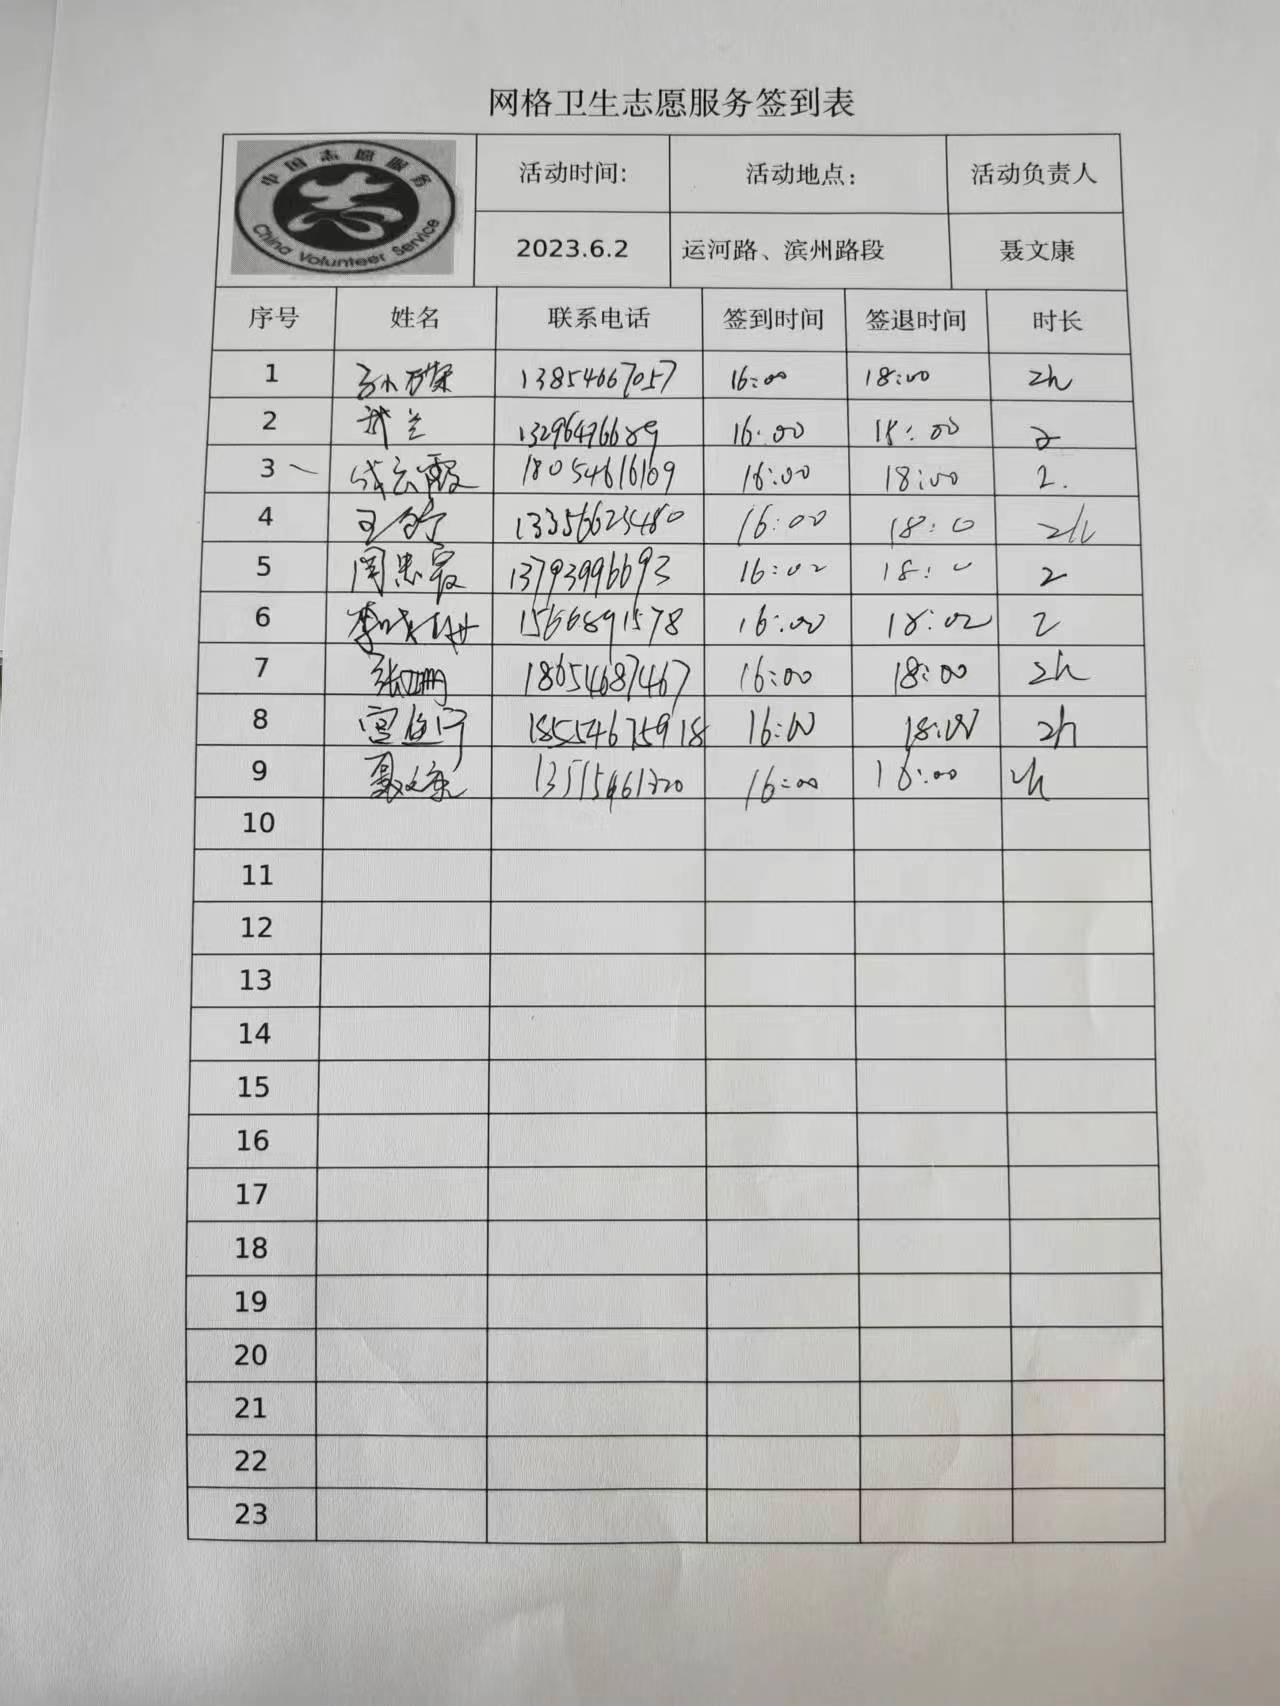 网格卫生志愿服务签到表
中国志愿服务
China Volunteer Service
活动时间: 活动地点: 活动负责人
2023.6.2 运河路、滨州路段 聂文康
序号 姓名 联系电话 签到时间 签退时间 时长
1 13854667057 16:00 18:00 2h
2 武兰 13296476689 16:00 18:00 2
3 云霞 18054616169 16:00 18:00 2.
4 王 13356623480 16:00 18:0 2h
5 周忠霞 13793996693 16:02 18:0 2
6 李 1566891578 16:00 18:02 2
7 张珊 18654687467 16:00 18:00 2h
8 宫 18554675918 16:00 18:00 2h
9 聂文康 16:00 16:00 2h
10
11
12
13
14
15
16
17
18
19
20
21
22
23